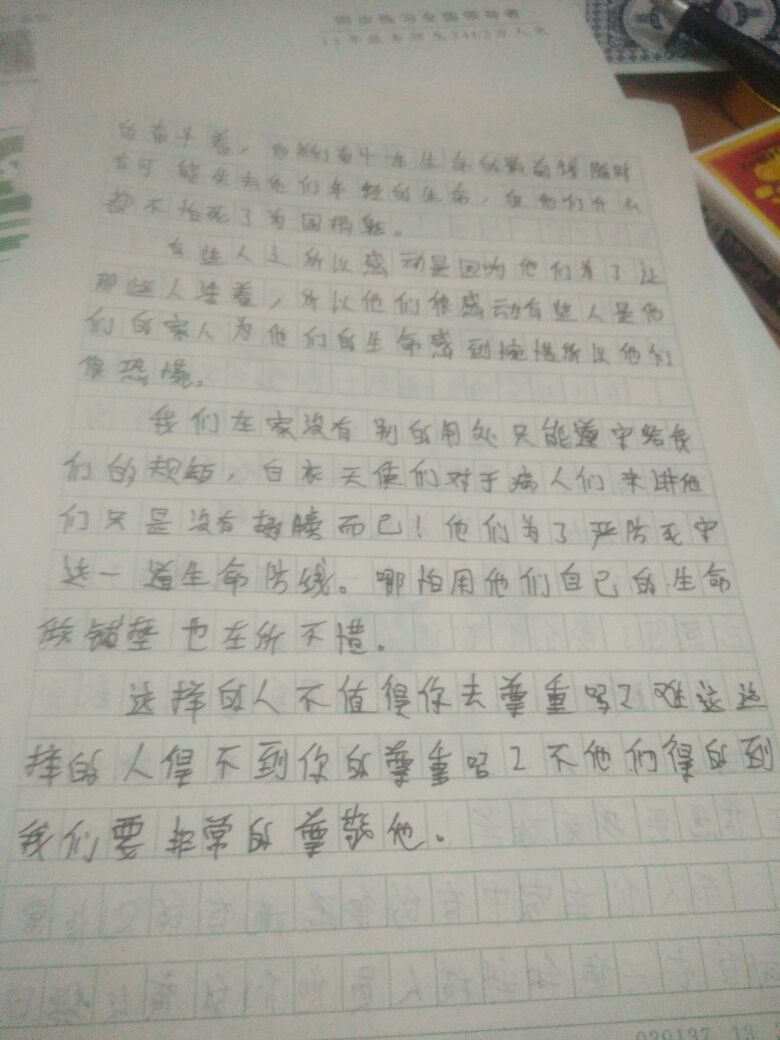 同步练习全国领导者
的奋斗着，他们奋斗在生命的最前线随时
有可能失去他们年轻的生命，但他们什么
都不怕死了为国捐躯。
有些人之所以感动是因为他们为了让
那些人活着，所以他们很感动有些人是他
们的家人为他们的生命感到惋惜所以他们
很恐慌。
我们在家没有别的用处只能遵守给我
们的规矩，白衣天使们对于病人们来讲他
们只是没有翅膀而已！他们为了严防死守
这一道生命防线。哪怕用他们自己的生命
做铺垫也在所不惜。
这样的人不值得你去尊重吗？难道这
样的人得不到你的尊重吗？不他们得的到
我们要非常的尊敬他。
020137 13